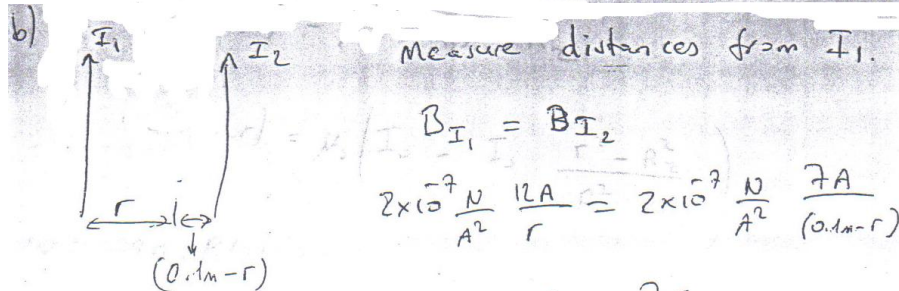 b) I₁ I₂ Measure distances from I₁.
B_I₁ = B_I₂
r
2×10⁻⁷ N/A² 12A/r = 2×10⁻⁷ N/A² 7A/(0.1m-r)
(0.1m-r)